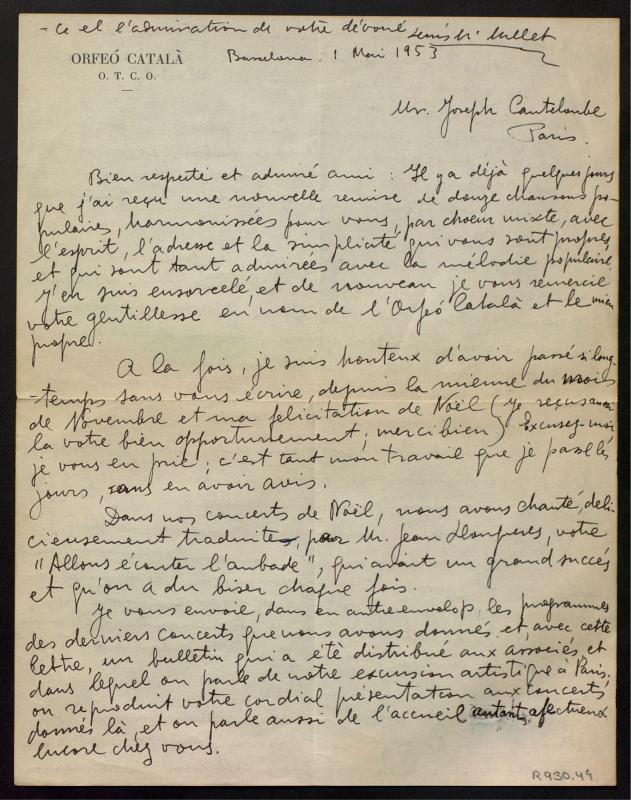 - Ce et l'admiration de votre dévoué Lluís Mª Millet
ORFEÓ CATALÀ
O. T. C. O.
Barcelona. 1 Mai 1953
Mr. Joseph Canteloube
Paris.
Bien respecté et admiré ami : Il y a déjà quelques jours
que j'ai reçu une nouvelle remise de douze chansons po-
pulaires, harmonissées pour vous, par choeur mixte, avec
l'esprit, l'adresse et la simplicité qui vous sont propres,
et qui sont tant admirées avec la mélodie populaire.
J'en suis ensorcelé, et de nouveau je vous remercie
votre gentillesse en nom de l'Orfeó Català et le mien
propre.
A la fois, je suis honteux d'avoir passé si long-
-temps sans vous écrire, depuis la mienne du mois
de Novembre et ma felicitation de Noël (je reçus aussi
la votre bien opportunement; merci bien) Excusez-moi
je vous en prie; c'est tant mon travail que je passe les
jours, sans en avoir avis.
Dans nos concerts de Noël, nous avons chanté, deli-
cieusement traduite, par M. Jean Llongueres, votre
"Allons écouter l'aubade", qui avait un grand succés
et qu'on a du biser chaque fois.
Je vous envoie, dans en autre envelop, les programmes
des derniers concerts que nous avons donnés et, avec cette
lettre, un bulletin qui a été distribué aux associés, et
dans lequel on parle de notre excursion artistique à Paris.
on reproduit votre cordial présentation aux concerts
donnés là, et on parle aussi de l'accueil autant afectueux
encore chez vous.
R 930.49